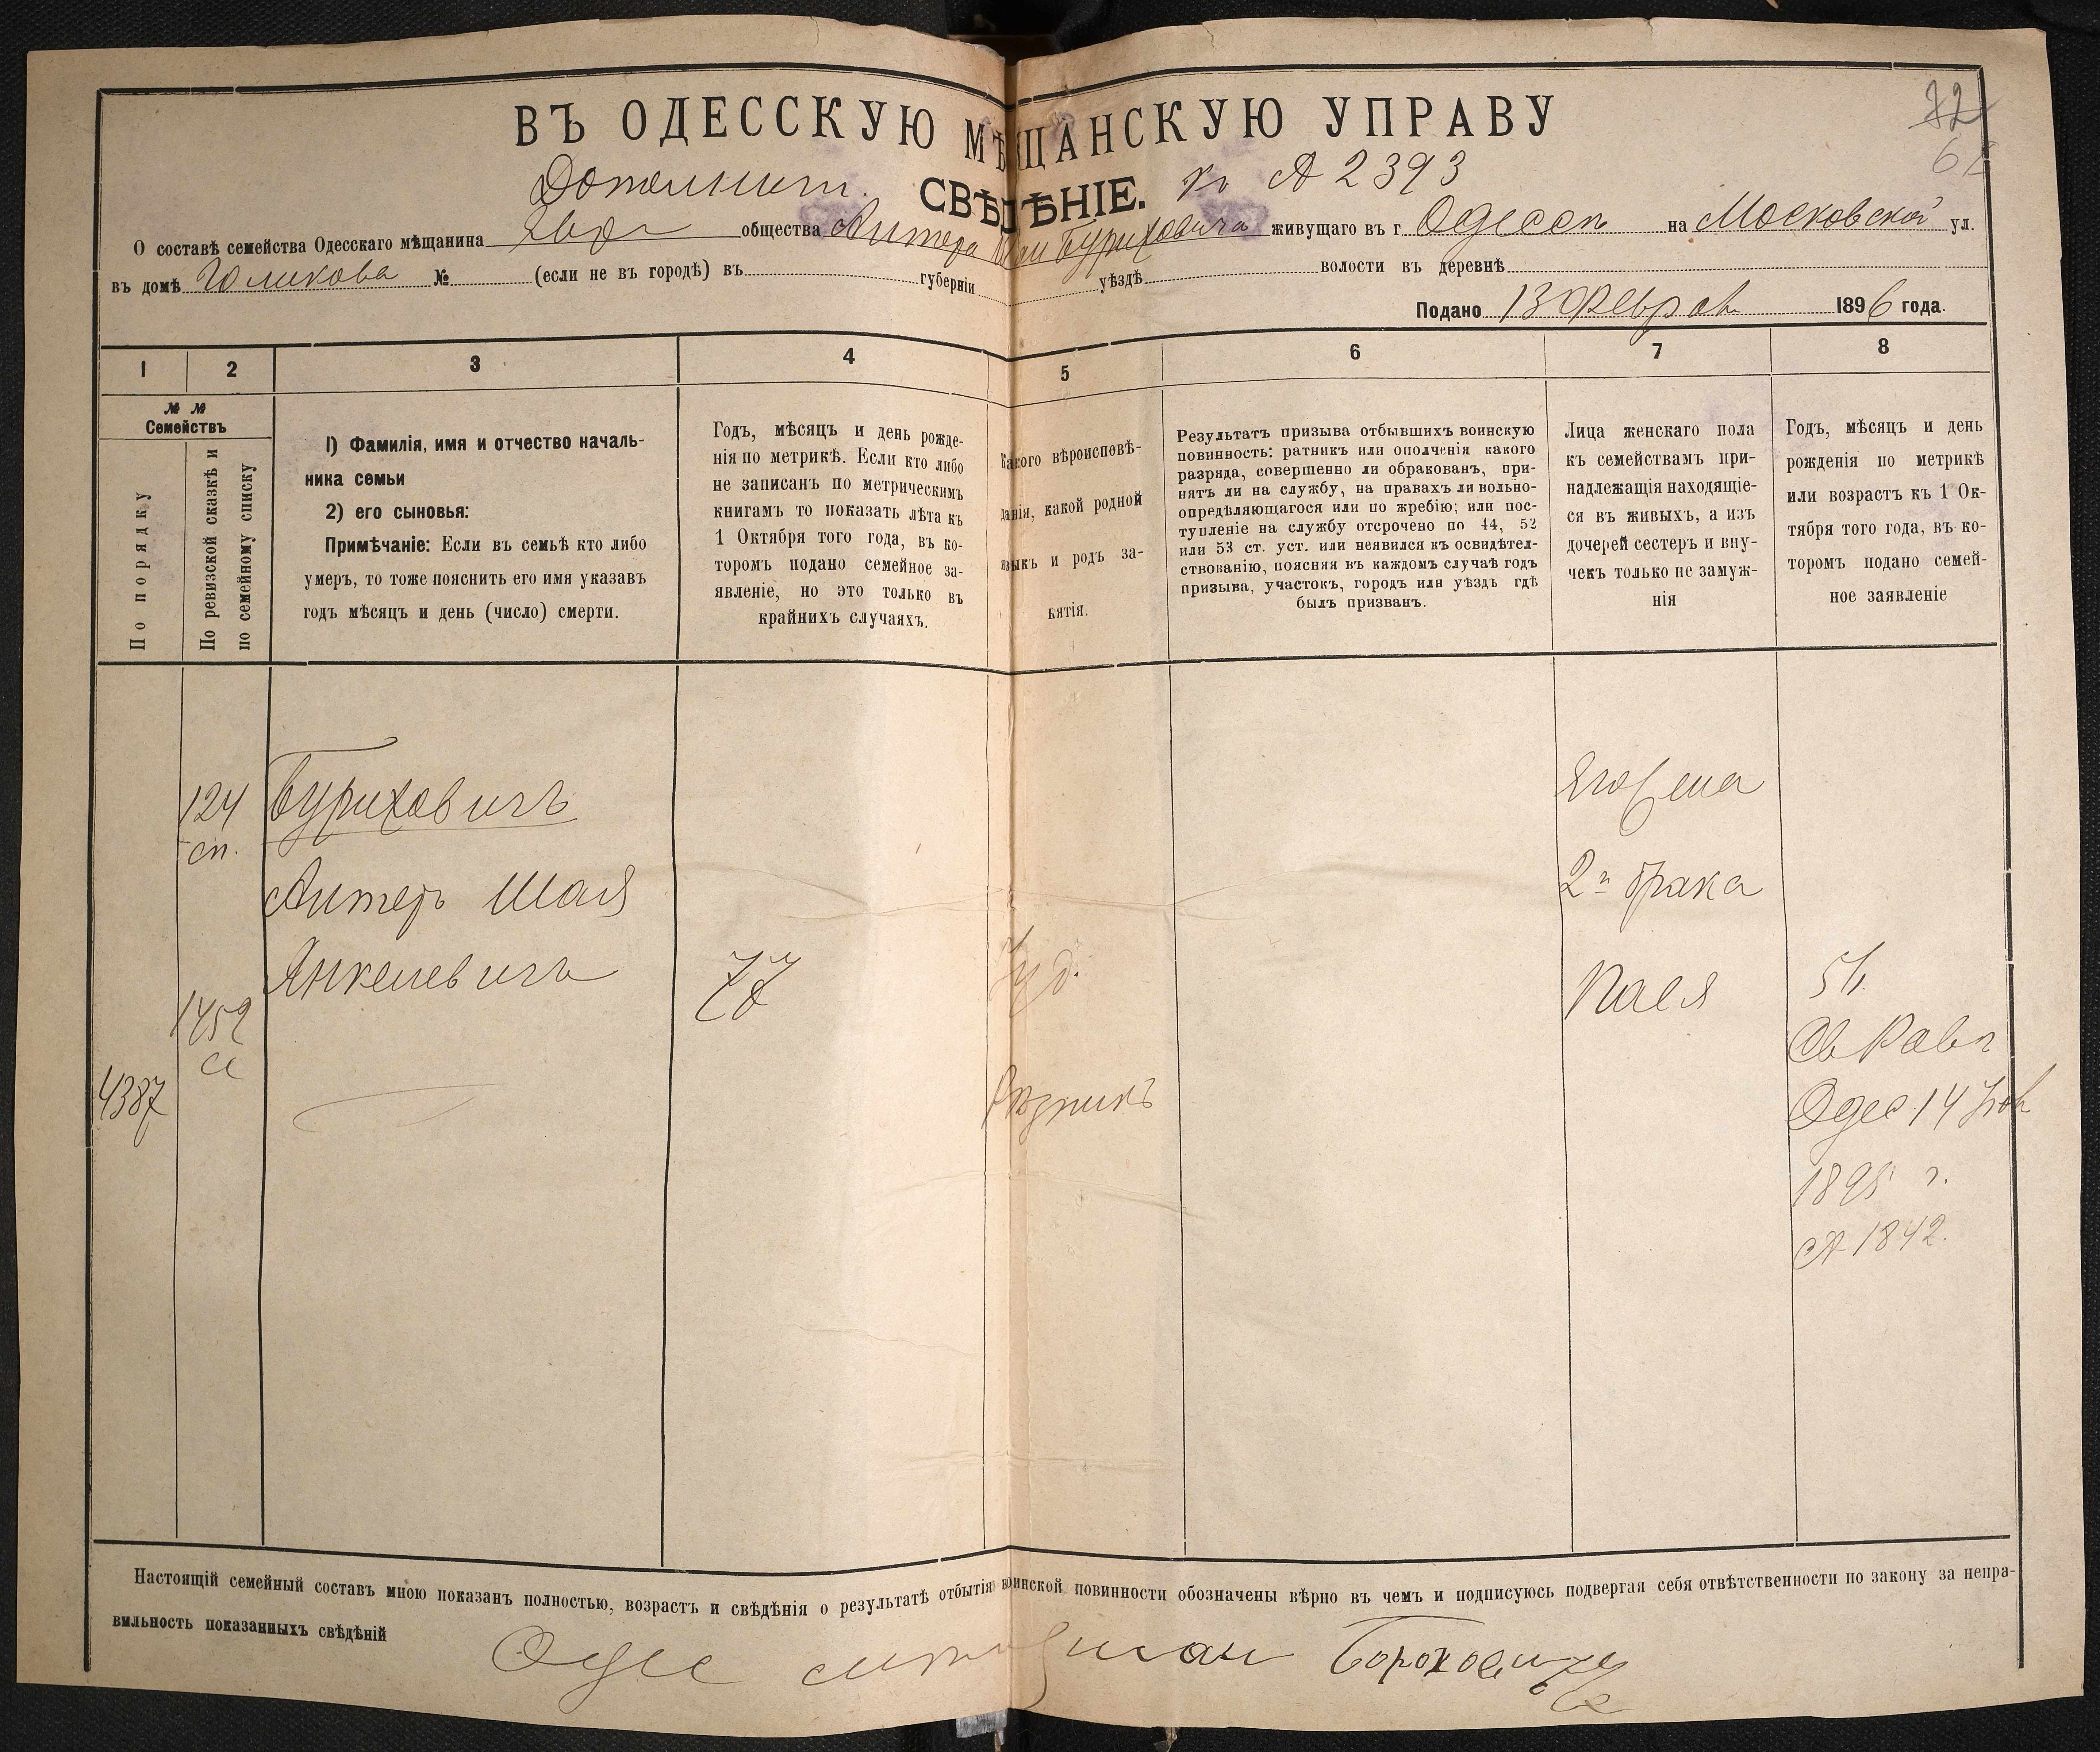 ВЪ ОДЕССКУЮ МѢЩАНСКУЮ УПРАВУ
72
Дополнит. СВѢДѢНІЕ. къ А 2393
О составѣ семейства Одесскаго мѣщанина Евр общества Альтера Шаи Буриховича живущаго въ г Одессѣ на Московской ул.
въ домѣ Голикова № (если не въ городѣ) въ губерніи уѣздѣ волости въ деревнѣ
Подано 13 Феврал 1896 года.
1 2 3 4 5 6 7 8
№ №
Семействъ
По порядку
По ревизской сказкѣ и
по семейному списку
1) Фамилія, имя и отчество началь-
ника семьи
2) его сыновья:
Примѣчаніе: Если въ семьѣ кто либо
умеръ, то тоже пояснить его имя указавъ
годъ мѣсяцъ и день (число) смерти.
Годъ, мѣсяцъ и день рожде-
нія по метрикѣ. Если кто либо
не записанъ по метрическимъ
книгамъ то показать лѣта къ
1 Октября того года, въ ко-
торомъ подано семейное за-
явленіе, но это только въ
крайнихъ случаяхъ.
Какого вѣроисповѣ-
данія, какой родной
языкъ и родъ за-
нятія.
Результатъ призыва отбывшихъ воинскую
повинность: ратникъ или ополченія какого
разряда, совершенно ли обракованъ, при-
нятъ ли на службу, на правахъ ли вольно-
опредѣляющагося или по жребію; или пос-
тупленіе на службу отсрочено по 44, 52
или 53 ст. уст. или неявился къ освидѣтел-
ствованію, поясняя въ каждомъ случаѣ годъ
призыва, участокъ, городъ или уѣздъ гдѣ
былъ призванъ.
Лица женскаго пола
къ семействамъ при-
надлежащія находящіе-
ся въ живыхъ, а изъ
дочерей сестеръ и вну-
чекъ только не замуж-
нія
Годъ, мѣсяцъ и день
рожденія по метрикѣ
или возрастъ къ 1 Ок-
тября того года, въ ко-
торомъ подано семей-
ное заявленіе
124
сп.
Буриховичъ
Альтеръ Шая
Янкелевичъ
77
Іуд.
Рѣзникъ
1459
4387
Его жена
2го брака
Пася
51
Св Равв
Одес 14 Янв
1895 г.
А 1842.
Настоящій семейный составъ мною показанъ полностью, возрастъ и свѣдѣнія о результатѣ отбытія воинской повинности обозначены вѣрно въ чемъ и подписуюсь подвергая себя отвѣтственности по закону за непра-
вильность показанныхъ свѣдѣній
Одес Бороховичъ